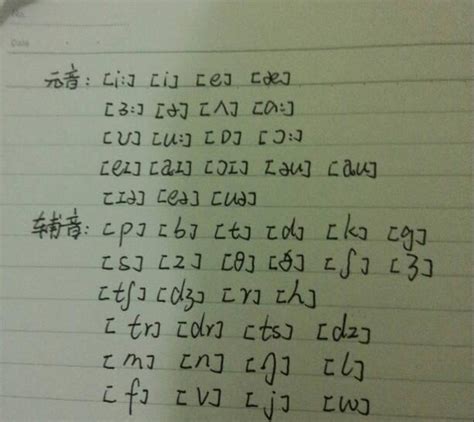 No.
Date
元音: [i:] [i] [e] [æ]
[ɜ:] [ə] [ʌ] [ɑ:]
[ʊ] [u:] [ɒ] [ɔ:]
[eɪ] [aɪ] [ɔɪ] [əu] [au]
[ɪə] [eə] [uə]
辅音: [p] [b] [t] [d] [k] [g]
[s] [z] [θ] [ð] [ʃ] [ʒ]
[tʃ] [dʒ] [r] [h]
[tr] [dr] [ts] [dz]
[m] [n] [ŋ] [l]
[f] [v] [j] [w]